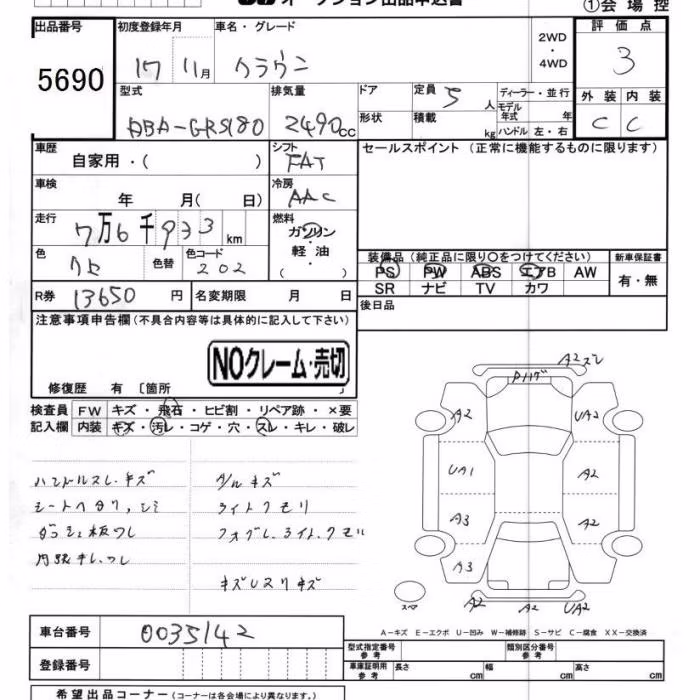 オークション出品申込書
①会場控
出品番号 初度登録年月 車名・グレード 2WD・4WD 評価点
5690 17 11月 クラウン 3
型式 排気量 ドア 定員 5人 ディーラー・並行 外装 内装
DBA-GRS180 2490cc 形状 積載 kg モデル年式 年 ハンドル 左・右 C C
車歴 自家用・( ) シフト FAT セールスポイント(正常に機能するものに限ります)
車検 年 月( 日) 冷房 AAC
走行 7万6千933km 燃料 ガソリン・軽油・( )
色 クロ 色替 色コード 202 装備品(純正品に限り○をつけてください) 新車保証書
PS PW ABS エアB AW 有・無
SR ナビ TV カワ
R券 13650円 名変期限 月 日 後日品
注意事項申告欄(不具合内容等は具体的に記入して下さい)
NOクレーム・売切
修復歴 有 〔箇所 〕
検査員 FW キズ・飛石・ヒビ割・リペア跡・×要
記入欄 内装 キズ・汚レ・コゲ・穴・スレ・キレ・破レ
ハンドルスレ・キズ
シートヘタリ、シミ ライトクモリ
A2 A2 UA2
UA1 A2
A3 A2
A3
スペア A2 A2 UA2
A-キズ E-エクボ U-凹み W-補修跡 S-サビ C-腐食 XX-交換済
車台番号 0035142
型式指定番号 参考 類別区分番号 参考
登録番号 車庫証明用 参考 長さ cm 幅 cm 高さ cm
希望出品コーナー(コーナーは各会場により異なります。)